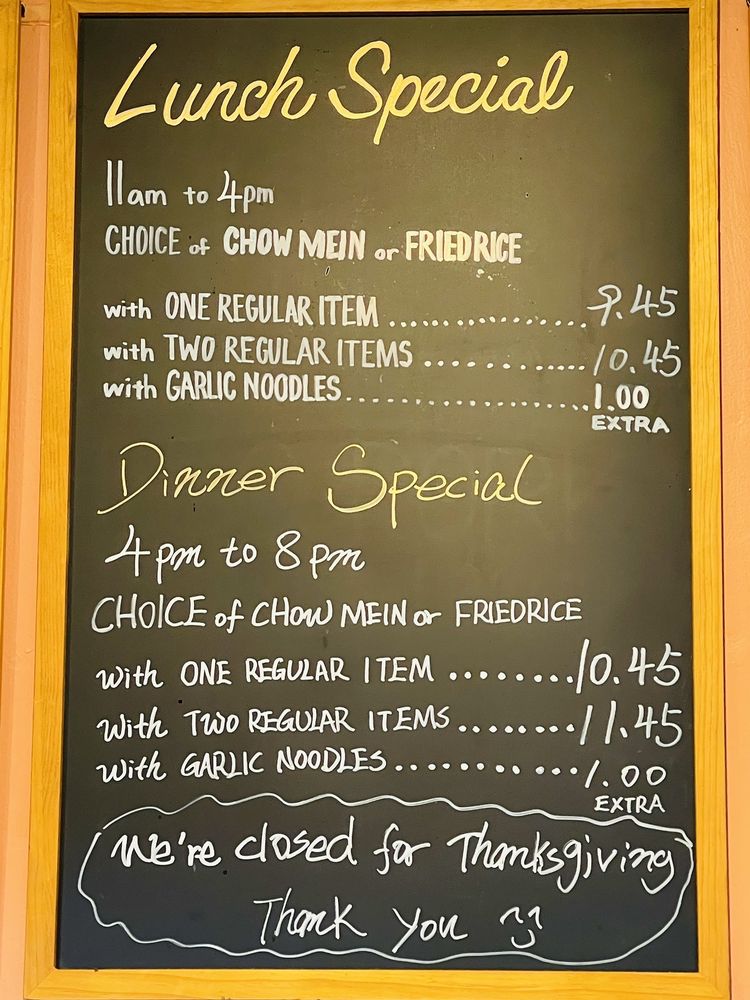 Lunch Special
11am to 4pm
CHOICE of CHOW MEIN or FRIED RICE
with ONE REGULAR ITEM ................... 9.45
with TWO REGULAR ITEMS ............. 10.45
with GARLIC NOODLES ........................ 1.00
EXTRA
Dinner Special
4pm to 8pm
CHOICE of CHOW MEIN or FRIEDRICE
with ONE REGULAR ITEM ........ 10.45
with TWO REGULAR ITEMS ........ 11.45
with GARLIC NOODLES ............ 1.00
EXTRA
We're closed for Thanksgiving
Thank you